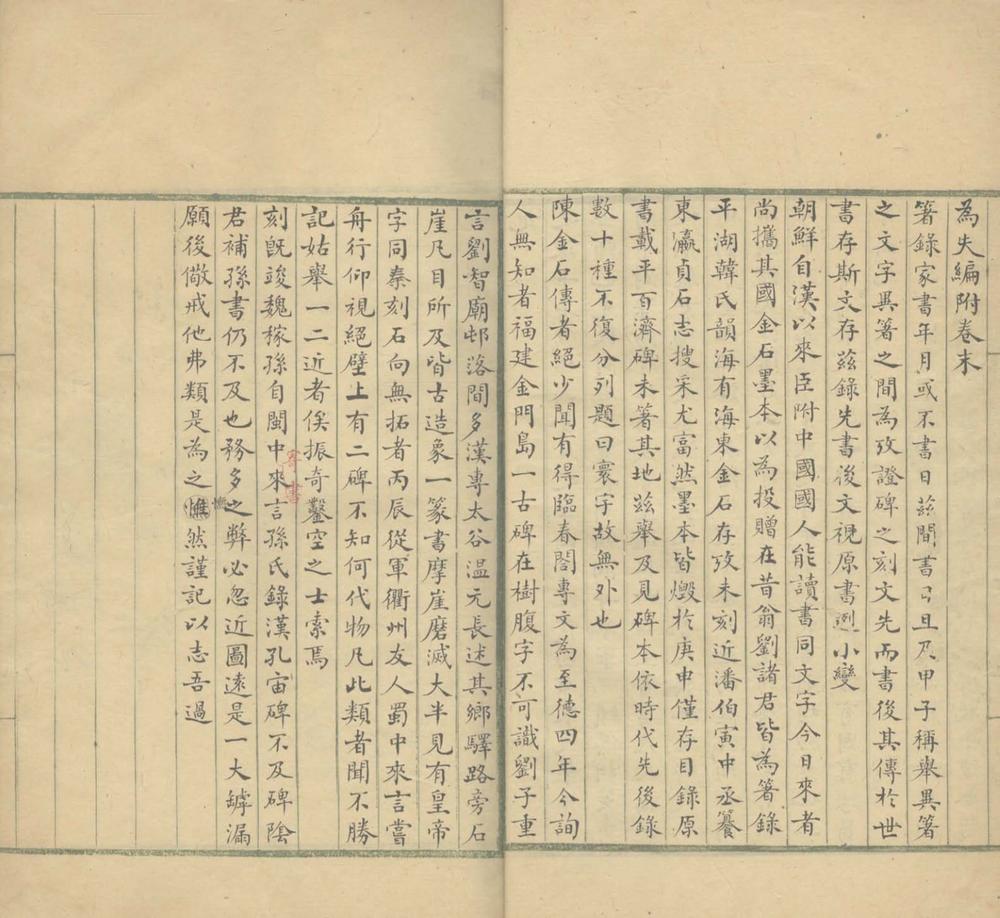 為失編附卷末
箸錄家書年月或不書日茲間書日且及甲子稱舉異箸
之文字異箸之間為攷證碑之刻文先而書後其傳於世
書存斯文存茲錄先書後文視原書迥小變
朝鮮自漢以來臣附中國國人能讀書同文字今日來者
尚攜其國金石墨本以為投贈在昔翁劉諸君皆為箸錄
平湖韓氏韻海有海東金石存攷未刻近潘伯寅中丞纂
東瀛貞石志搜采尤富然墨本皆燬於庚申僅存目錄原
書載平百濟碑未箸其地茲舉及見碑本依時代先後錄
數十種不復分列題曰寰宇故無外也
陳金石傳者絕少聞有得臨春閣專文為至德四年今詢
人無知者福建金門島一古碑在樹腹字不可識劉子重
言劉智廟邨落間多漢專太谷溫元長述其鄉驛路旁石
崖凡目所及皆古造象一篆書摩崖磨滅大半見有皇帝
字同秦刻石向無拓者丙辰從軍衢州友人蜀中來言嘗
舟行仰視絕壁上有二碑不知何代物凡此類者聞不勝
記姑舉一二近者俟振奇鑿空之士索焉
刻既竣魏稼孫自閩中來言孫氏錄漢孔宙碑不及碑陰
君補孫書仍不及也務多之弊必忽近圖遠是一大罅漏
願後儆戒他弗類是為之憮然謹記以志吾過